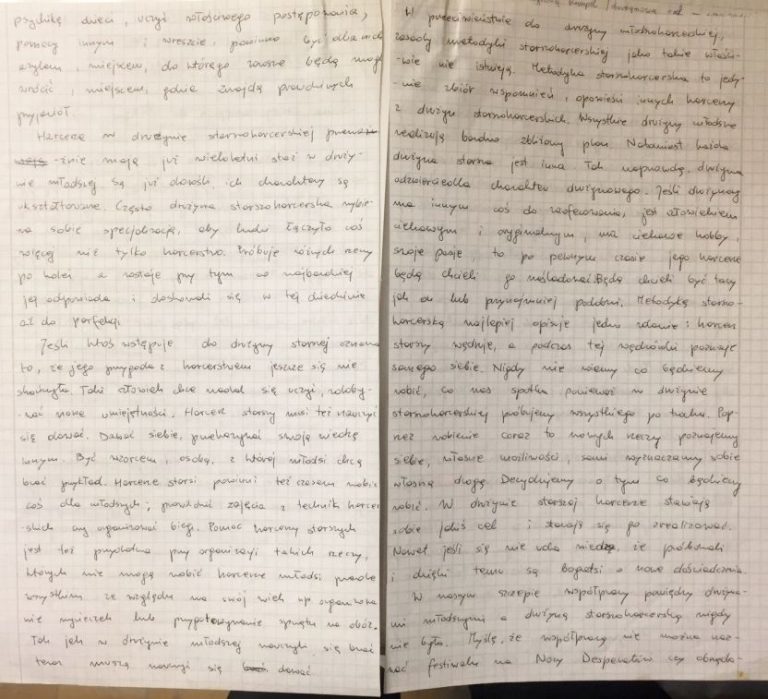 psychikę dzieci, uczyć właściwego postępowania,
pomocy innym i wreszcie, powinno być dla nich
azylem, miejscem, do którego zawsze będą mogli
wrócić, miejscem, gdzie znajdą prawdziwych
przyjaciół.
Harcerze w drużynie starszoharcerskiej
-żnie mają już wieloletni staż w druży-
nie młodszej. Są już dorośli, ich charaktery są
ukształtowane. Często drużyna starszoharcerska wybie-
ra sobie specjalizację, aby ludzi łączyło coś
więcej niż tylko harcerstwo. Próbuje różnych rzeczy
po kolei a zostaje przy tym co najbardziej
jej odpowiada i doskonali się w tej dziedzinie
aż do perfekcji.
Jeśli ktoś wstępuje do drużyny starszej oznacza
to, że jego przygoda z harcerstwem jeszcze się nie
skończyła. Taki człowiek chce nadal się uczyć, zdoby-
wać nowe umiejętności. Harcerz starszy musi też nauczyć
się dawać. Dawać siebie, przekazywać swoją wiedzę
innym. Być wzorcem, osobą, z której młodsi chcą
brać przykład. Harcerze starsi powinni też czasem zrobić
coś dla młodszych; prowadzić zajęcia z technik harcer-
skich czy organizować biegi. Pomoc harcerzy starszych
jest też przydatna przy organizacji takich rzeczy,
których nie mogą robić harcerze młodsi przede
wszystkim ze względu na swój wiek np. organizowa-
nie wycieczek lub przygotowywanie sprzętu na obóz.
Tak jak w drużynie młodszej nauczyli się brać
teraz muszą nauczyć się dawać.
W przeciwieństwie do drużyny młodszoharcerskiej,
zasady metodyki starszoharcerskiej jako takie właści-
-wie nie istnieją. Metodyka starszoharcerska to jedy-
-nie zbiór wspomnień, opowieści innych harcerzy
z drużyn starszoharcerskich. Wszystkie drużyny młodsze
realizują bardzo zbliżony plan. Natomiast każda
drużyna starsza jest inna. Tak naprawdę, drużyna
odzwierciedla charakter drużynowego. Jeśli drużynowy
ma innym coś do zaoferowania, jest człowiekiem
ciekawym i oryginalnym, ma ciekawe hobby,
swoje pasje, to po pewnym czasie jego harcerze
będą chcieli go naśladować. Będą chcieli być tacy
jak on lub przynajmniej podobni. Metodykę starszo-
harcerską najlepiej opisuje jedno zdanie: harcerz
starszy wędruje, a podczas tej wędrówki poznaje
samego siebie. Nigdy nie wiemy co będziemy
robić, co nas spotka ponieważ w drużynie
starszoharcerskiej próbujemy wszystkiego po trochu. Pop-
rzez robienie coraz to nowych rzeczy poznajemy
siebie, własne możliwości, sami wyznaczamy sobie
własną drogę. Decydujemy o tym co będziemy
robić. W drużynie starszej harcerze stawiają
sobie jakiś cel i starają się go zrealizować.
Nawet jeśli się nie uda wiedzą, że próbowali
i dzięki temu są bogatsi o nowe doświadczenia.
W naszym szczepie współpracy pomiędzy drużyna-
mi młodszymi a drużyną starszoharcerską nigdy
nie było. Myślę, że współpracą nie można naz-
wać festiwalu na Nocy Desperatów czy